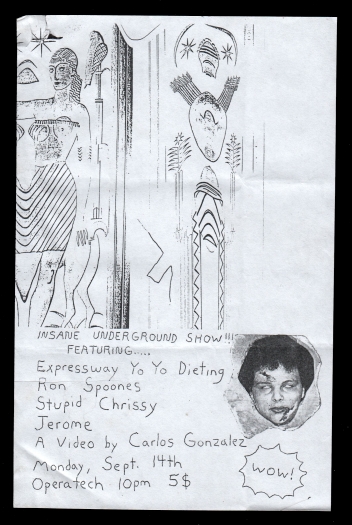 INSANE UNDERGROUND SHOW!!!
FEATURING.....
Expressway Yo Yo Dieting
Ron Spoones
Stupid Chrissy
Jerome
A Video by Carlos Gonzalez
Monday, Sept. 14th
Operatech 10pm 5$
WOW!